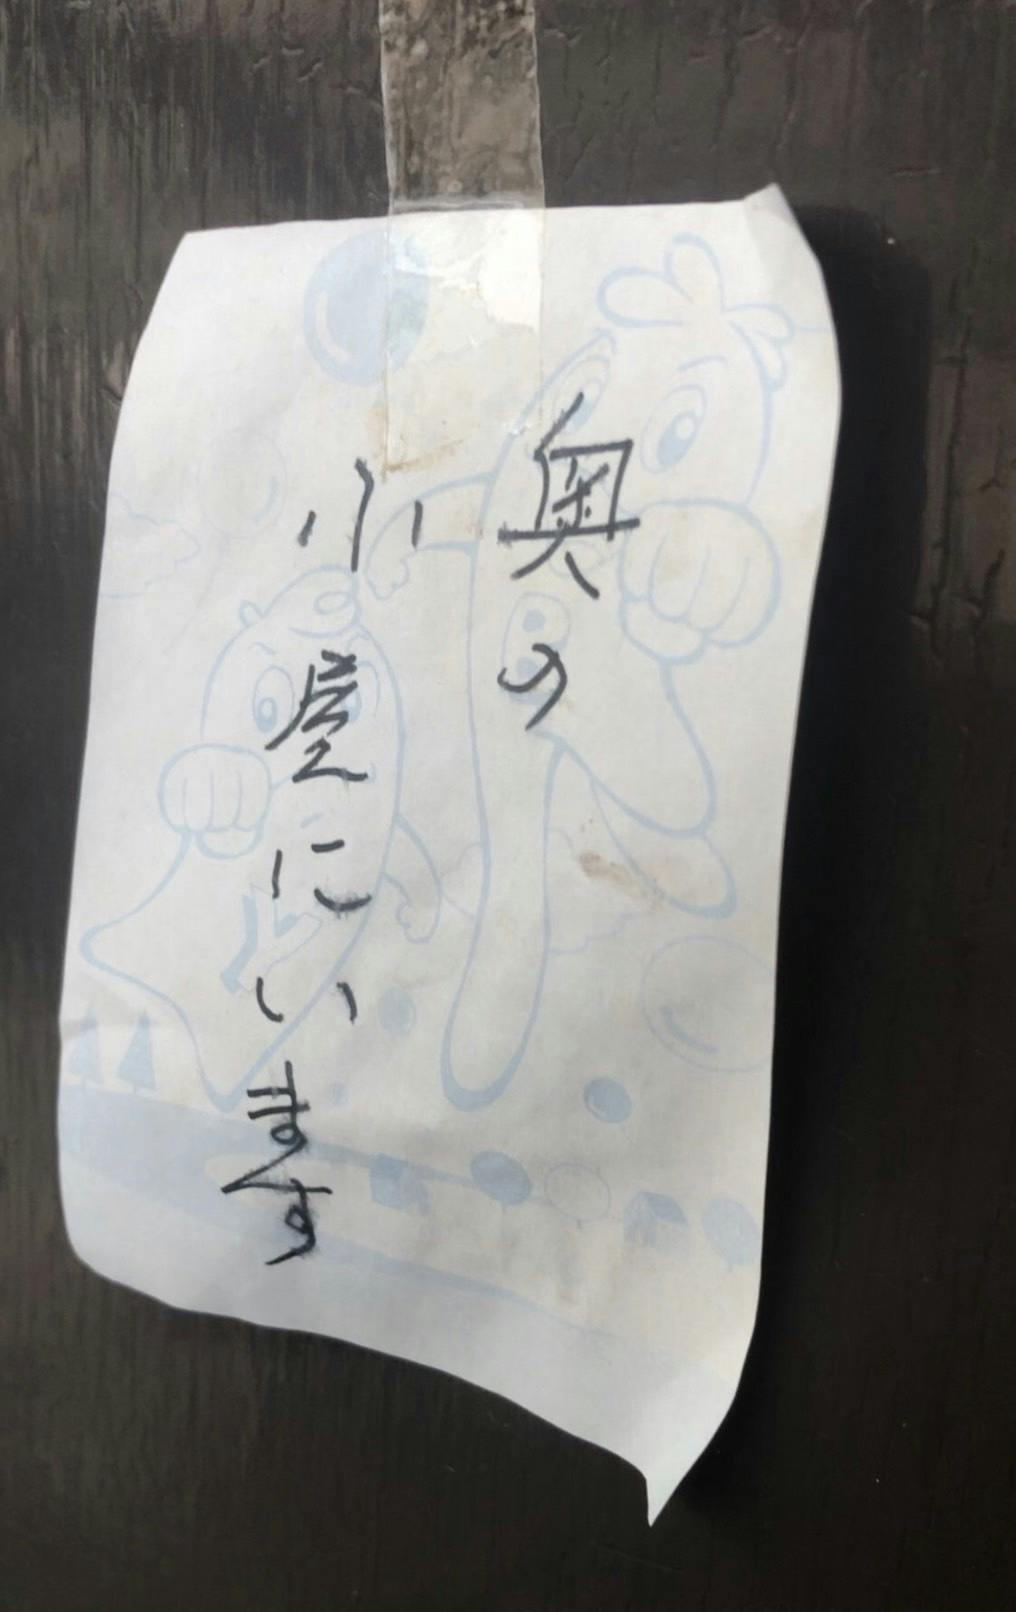 奥の
小屋にいます